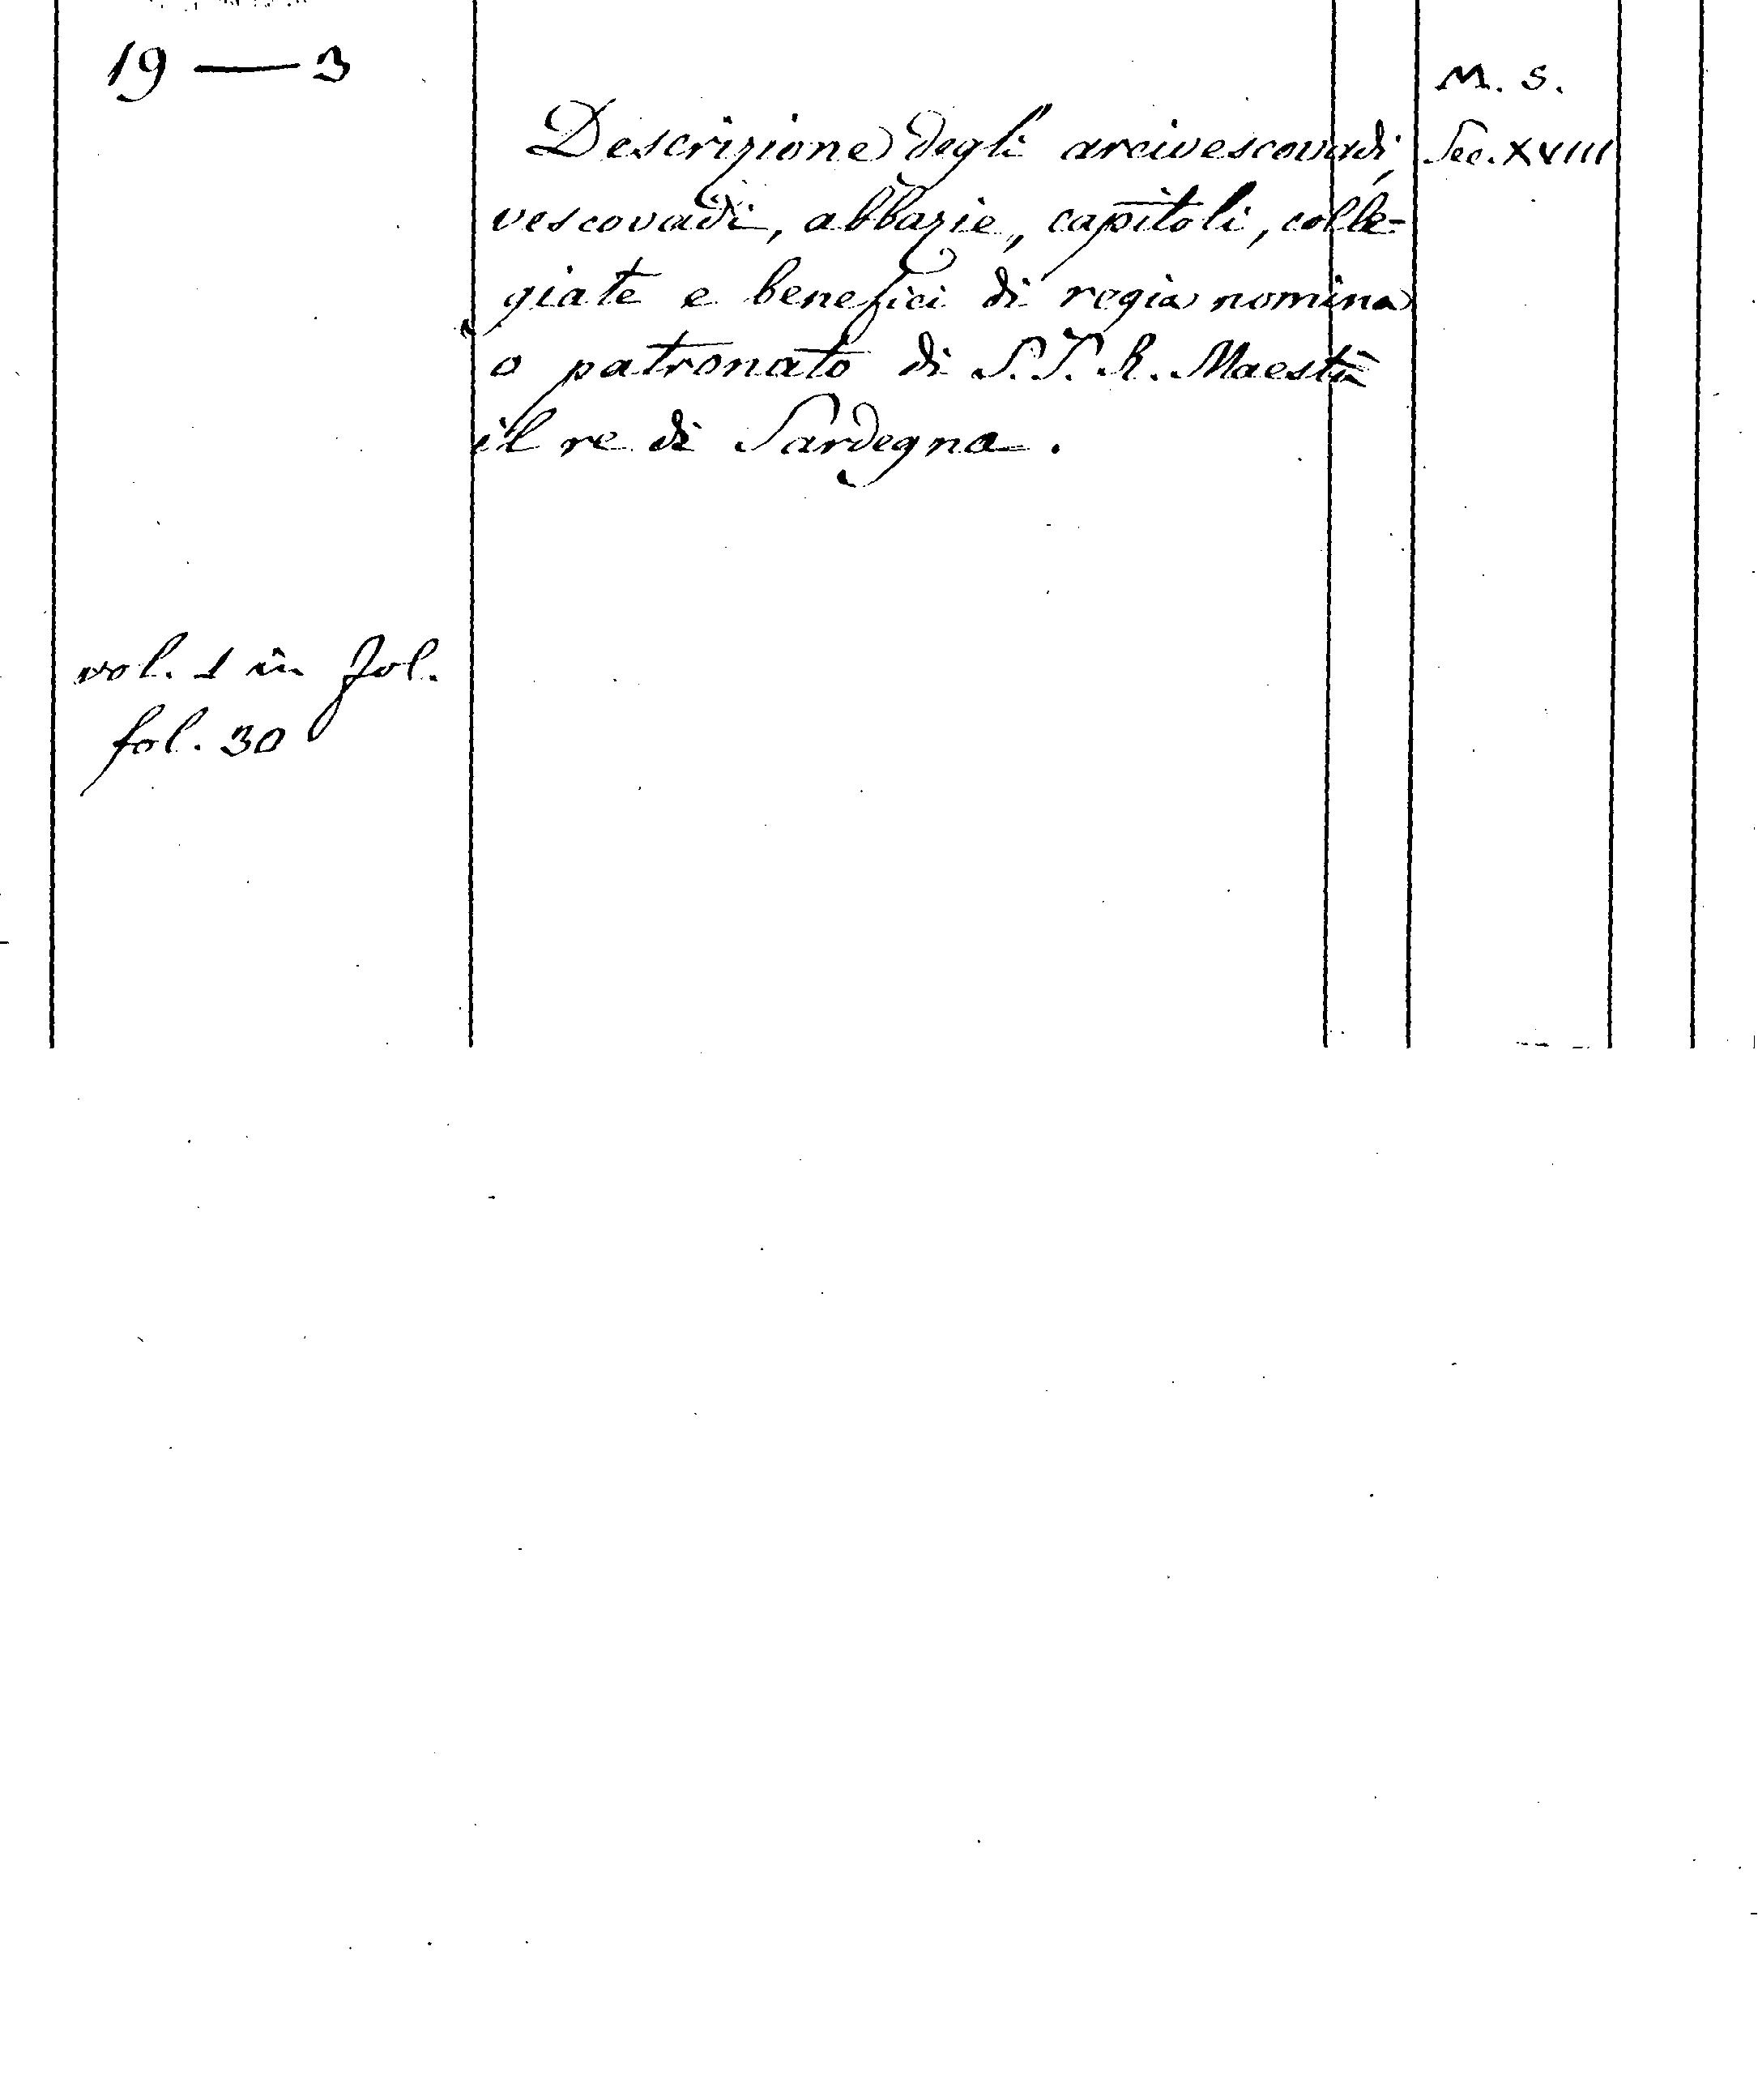 19 — 3
M. S.
Sec. XVIII
Descrizione degli arcivescovadi,
vescovadi, abbazie, capitoli, colle-
giate e benefici di regia nomina
o patronato di S. S. R. Maestà
il re di Sardegna.
vol. 1 in fol.
fol. 30